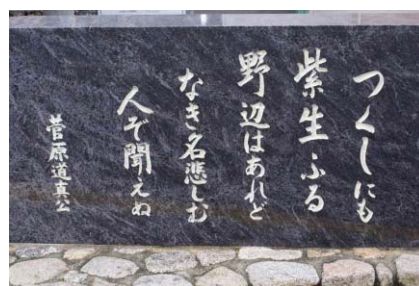 つくしにも
紫生ふる
野辺はあれど
なき名悲しむ
人ぞ聞えぬ
菅原道真公